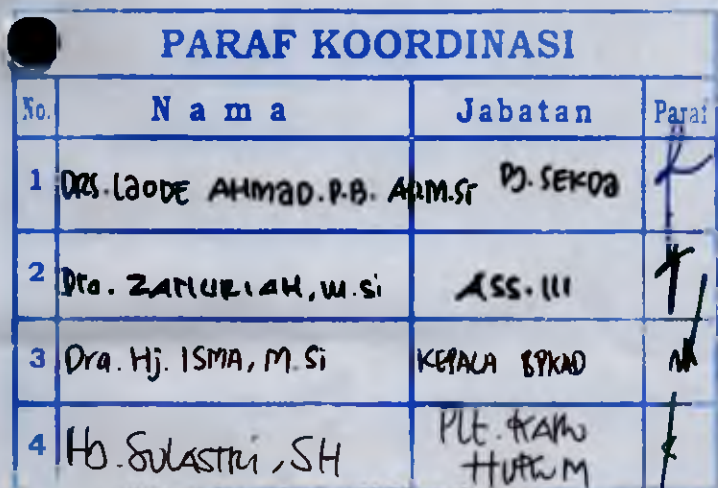 PARAF KOORDINASI
No. Nama Jabatan Paraf
1 DRS. LAODE AHMAD. P.B. AP.M.Si PJ. SEKDA
2 Dra. ZANURIAH, M.Si ASS. III
3 Dra. Hj. ISMA, M.Si KEPALA BPKAD
4 Hj. SULASTRI, SH PLt. KARO
HUKUM